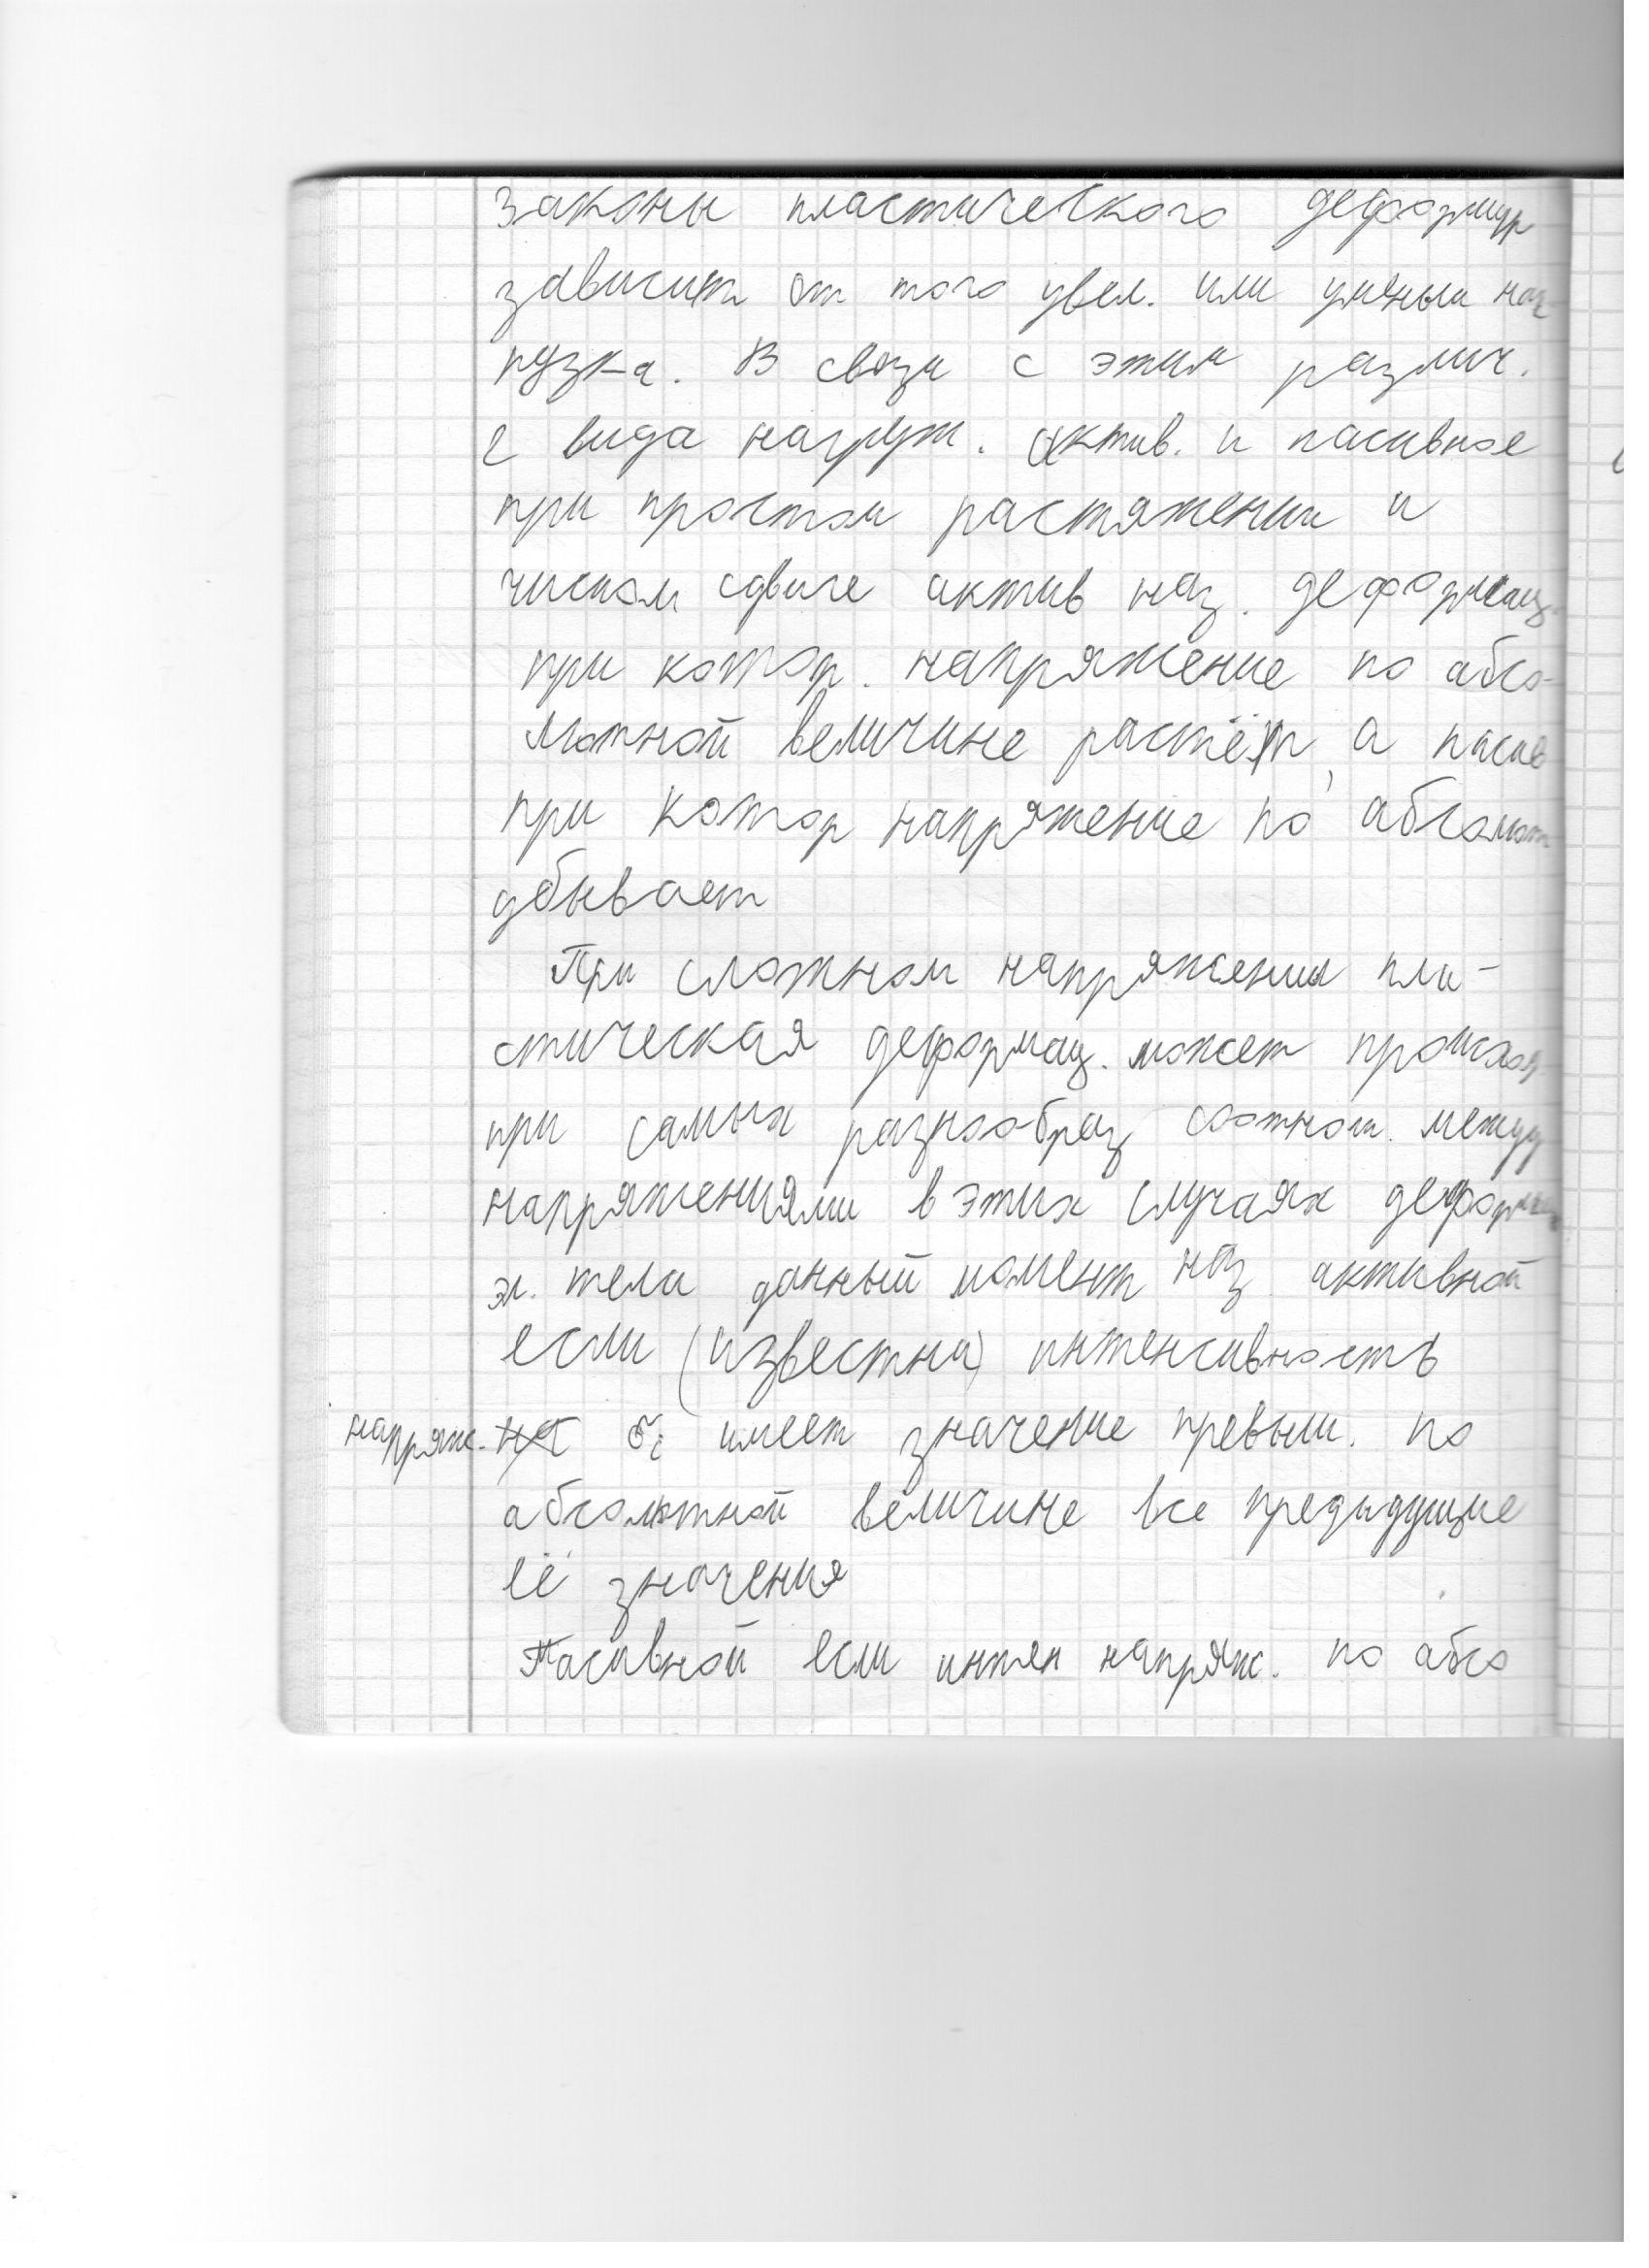 законы пластического деформир
зависит от того увел. или уменьш наг-
рузка. В связи с этим различ.
2 вида нагруж. актив. и пасивное
при простом растяжении и
чистом сдвиге актив наз. деформац.
при котор. напряжение по абсо-
лютной величине растёт, а пасив
при котор напряжение по абсолют
убывает
При сложном напряжении пла-
стическая деформац. может происход
при самых разнообраз соотнош. между
напряжениями в этих случаях деформац
эл. тела данный момент наз активной
если (известна) интенсивность
напряж. σi имеет значение превыш. по
абсолютной величине все предыдущие
её значения
Пасивной если интен напряж. по абсо